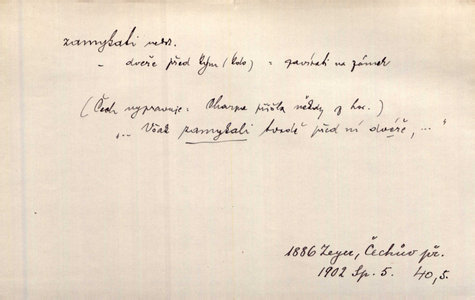 zamykati nedok.
- dveře před kým (kdo) = zavírati na zámek
(Čech vypravuje: Charza přišla někdy z hor.)
„… Však zamykali tvrdě před ní dvéře, …"
1886 Zeyer, Čechův př.
1902 Sp. 5. 40,5.